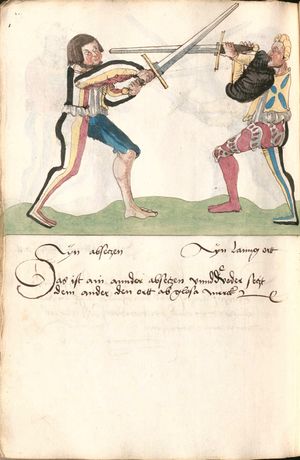 Eyn absetzen
Eyn lanng ort
Das ist ain annder absetzen vnnd der setzt
dem ander den ort ab glosa merck